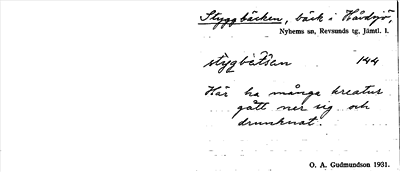 Styggbäcken, bäck i Håvdsjö,
Nyhems sn, Revsunds tg, Jämtl. l.
stygbätsan 144
Här ha många kreatur
gått ner sig och
drunknat.
O. A. Gudmundson 1931.